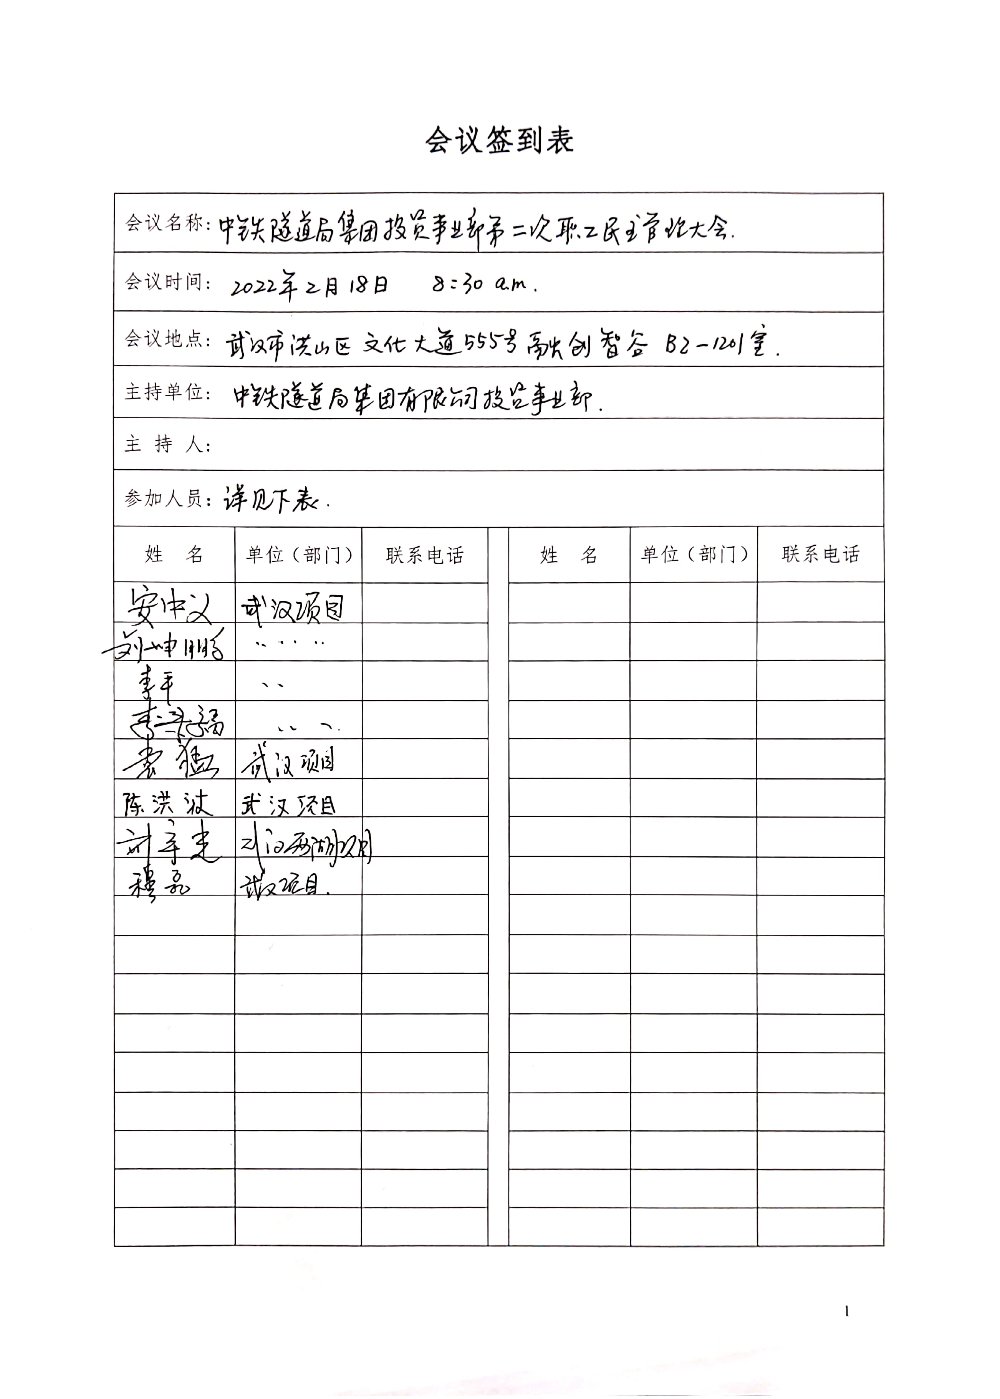 会议签到表
会议名称: 中铁隧道局集团投资事业部第二次职工民主管理大会.
会议时间: 2022年2月18日 8:30 a.m.
会议地点: 武汉市洪山区文化大道555号融创智谷 B2-1201室.
主持单位: 中铁隧道局集团有限公司投资事业部.
主 持 人:
参加人员: 详见下表.
姓 名 单位(部门) 联系电话 姓 名 单位(部门) 联系电话
安中义 武汉项目
刘坤鹏 〃 〃
李平 〃
李 福 〃 〃
袁猛 武汉项目
陈洪波 武汉项目
刘宇光 武汉两湖项目
穆磊 武汉项目.
1